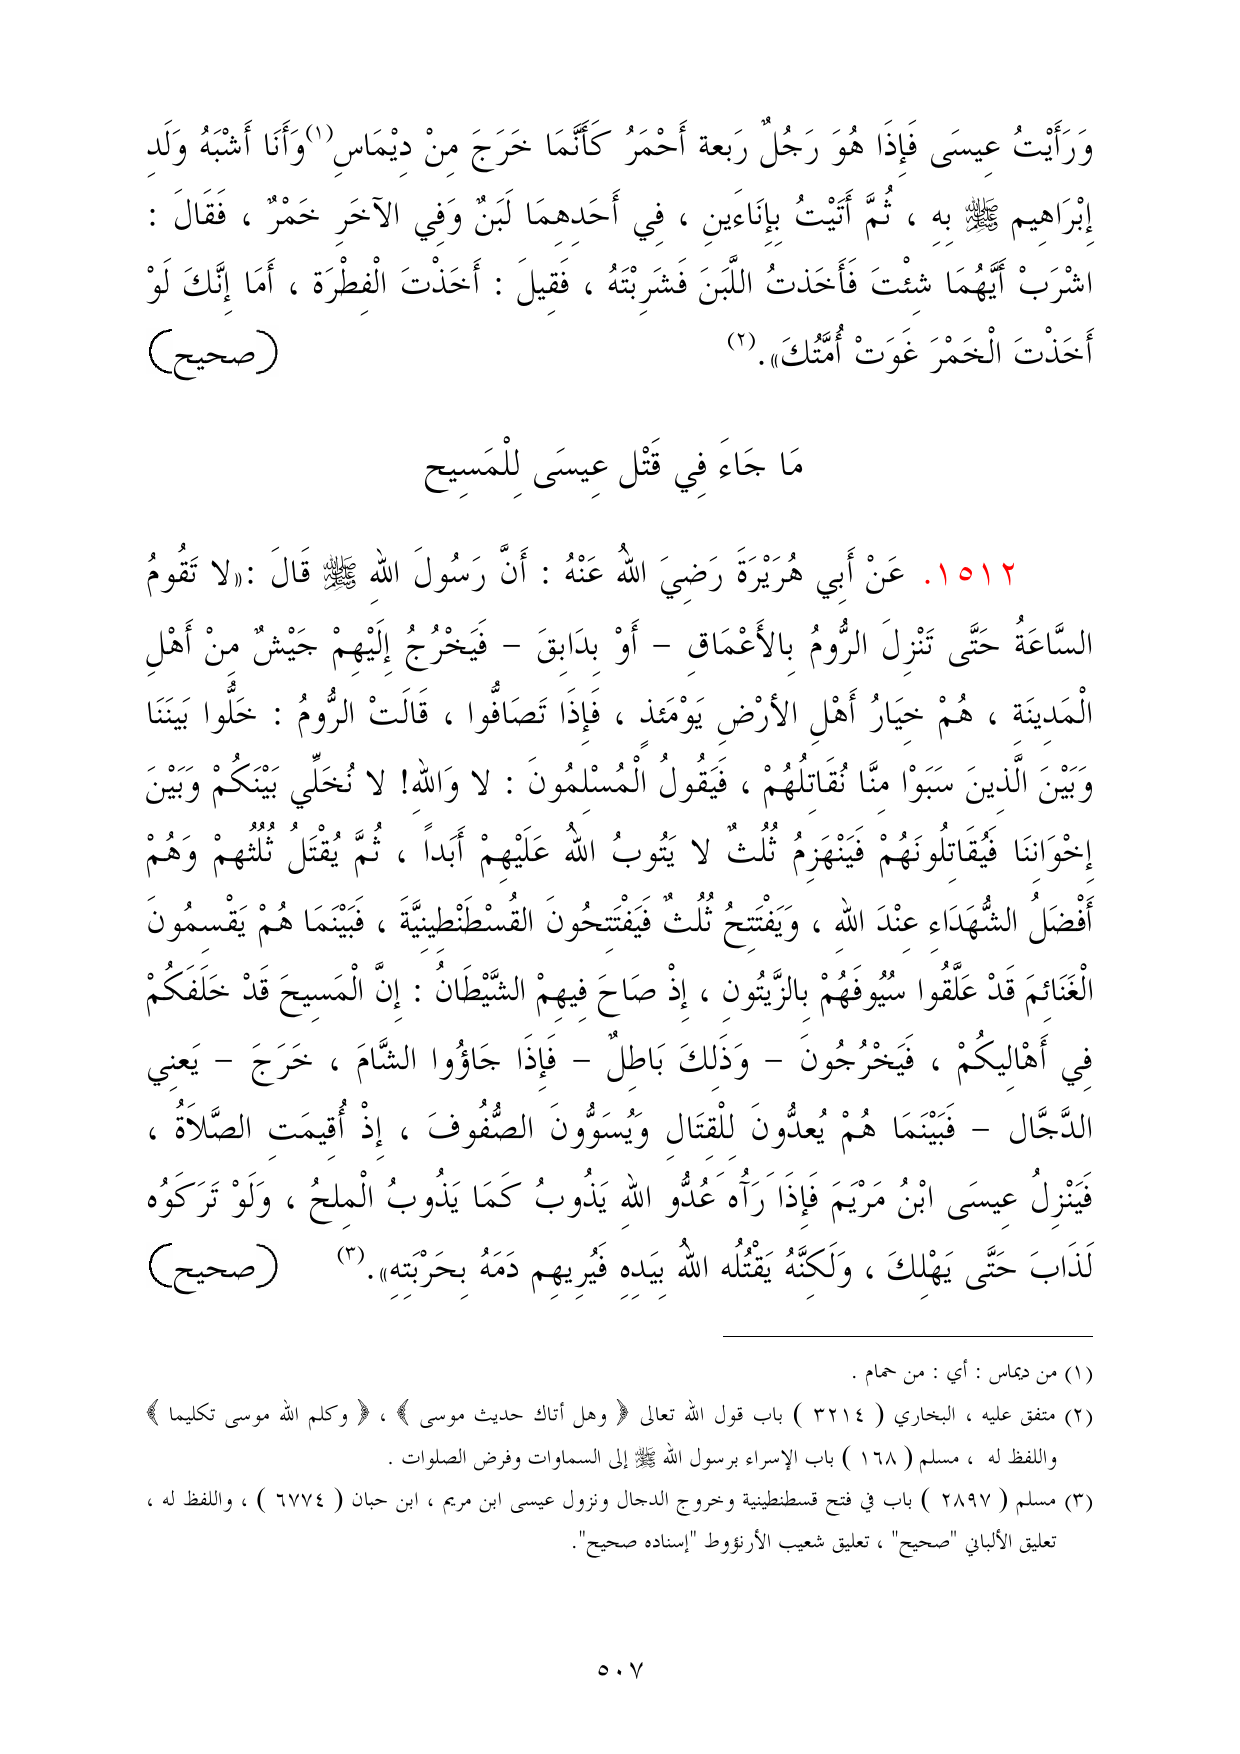 وَرَأَيْتُ عِيسَى فَإِذَا هُوَ رَجُلٌ رَبعة أَحْمَرُ كَأَنَّمَا خَرَجَ مِنْ دِيْمَاسِ(١)وَأَنَا أَشْبَهُ وَلَدِ
إِبْرَاهِيم ﷺ بِهِ ، ثُمَّ أَتَيْتُ بِإِنَاءَينِ ، فِي أَحَدِهِمَا لَبَنٌ وَفِي الآخَرِ خَمْرٌ ، فَقَالَ :
اشْرَبْ أَيَّهُمَا شِئْتَ فَأَخَذتُ اللَّبَنَ فَشَرِبْتَهُ ، فَقِيلَ : أَخَذْتَ الْفِطْرَة ، أَمَا إِنَّكَ لَوْ
أَخَذْتَ الْخَمْرَ غَوَتْ أُمَّتُكَ».(٢) (صحيح)
مَا جَاءَ فِي قَتْل عِيسَى لِلْمَسِيح
١٥١٢. عَنْ أَبِي هُرَيْرَةَ رَضِيَ اللهُ عَنْهُ : أَنَّ رَسُولَ اللهِ ﷺ قَالَ :«لا تَقُومُ
السَّاعَةُ حَتَّى تَنْزِلَ الرُّومُ بِالأَعْمَاقِ – أَوْ بِدَابِقَ – فَيَخْرُجُ إِلَيْهِمْ جَيْشٌ مِنْ أَهْلِ
الْمَدِينَةِ ، هُمْ خِيَارُ أَهْلِ الأرْضِ يَوْمَئذٍ ، فَإِذَا تَصَافُّوا ، قَالَتْ الرُّومُ : خَلُّوا بَيْنَنَا
وَبَيْنَ الَّذِينَ سَبَوْا مِنَّا نُقَاتِلُهُمْ ، فَيَقُولُ الْمُسْلِمُونَ : لا وَاللهِ! لا نُخَلِّي بَيْنَكُمْ وَبَيْنَ
إِخْوَانِنَا فَيُقَاتِلُونَهُمْ فَيَنْهَزِمُ ثُلُثٌ لا يَتُوبُ اللهُ عَلَيْهِمْ أَبَداً ، ثُمَّ يُقْتَلُ ثُلُثُهمْ وَهُمْ
أَفْضَلُ الشُّهَدَاءِ عِنْدَ اللهِ ، وَيَفْتَتِحُ ثُلُثٌ فَيَفْتَتِحُونَ القُسْطَنْطِينِيَّةَ ، فَبَيْنَمَا هُمْ يَقْسِمُونَ
الْغَنَائِمَ قَدْ عَلَّقُوا سُيُوفَهُمْ بِالزَّيتُونِ ، إِذْ صَاحَ فِيهِمْ الشَّيْطَانُ : إِنَّ الْمَسِيحَ قَدْ خَلَفَكُمْ
فِي أَهْالِيكُمْ ، فَيَخْرُجُونَ – وَذَلِكَ بَاطِلٌ – فَإِذَا جَاؤُوا الشَّامَ ، خَرَجَ – يَعنِي
الدَّجَّال – فَبَيْنَمَا هُمْ يُعدُّونَ لِلْقِتَالِ وَيُسَوُّونَ الصُّفُوفَ ، إِذْ أُقِيمَتِ الصَّلاَةُ ،
فَيَنْزِلُ عِيسَى ابْنُ مَرْيَمَ فَإِذَا رَآَهُ عُدُّو اللهِ يَذُوبُ كَمَا يَذُوبُ الْمِلحُ ، وَلَوْ تَرَكَوُه
لَذَابَ حَتَّى يَهْلِكَ ، وَلَكنَّهُ يَقْتُلُه اللهُ بِيَدِهِ فَيُرِيهِم دَمَهُ بِحَرْبَتِهِ».(٣) (صحيح)
(١) من ديماس : أي : من حمام .
(٢) متفق عليه ، البخاري ( ٣٢١٤ ) باب قول الله تعالى ﴿ وهل أتاك حديث موسى ﴾ ، ﴿ وكلم الله موسى تكليما ﴾
واللفظ له ، مسلم ( ١٦٨ ) باب الإسراء برسول الله ﷺ إلى السماوات وفرض الصلوات .
(٣) مسلم ( ٢٨٩٧ ) باب في فتح قسطنطينية وخروج الدجال ونزول عيسى ابن مريم ، ابن حبان ( ٦٧٧٤ ) ، واللفظ له ،
تعليق الألباني "صحيح" ، تعليق شعيب الأرنؤوط "إسناده صحيح".
٥٠٧